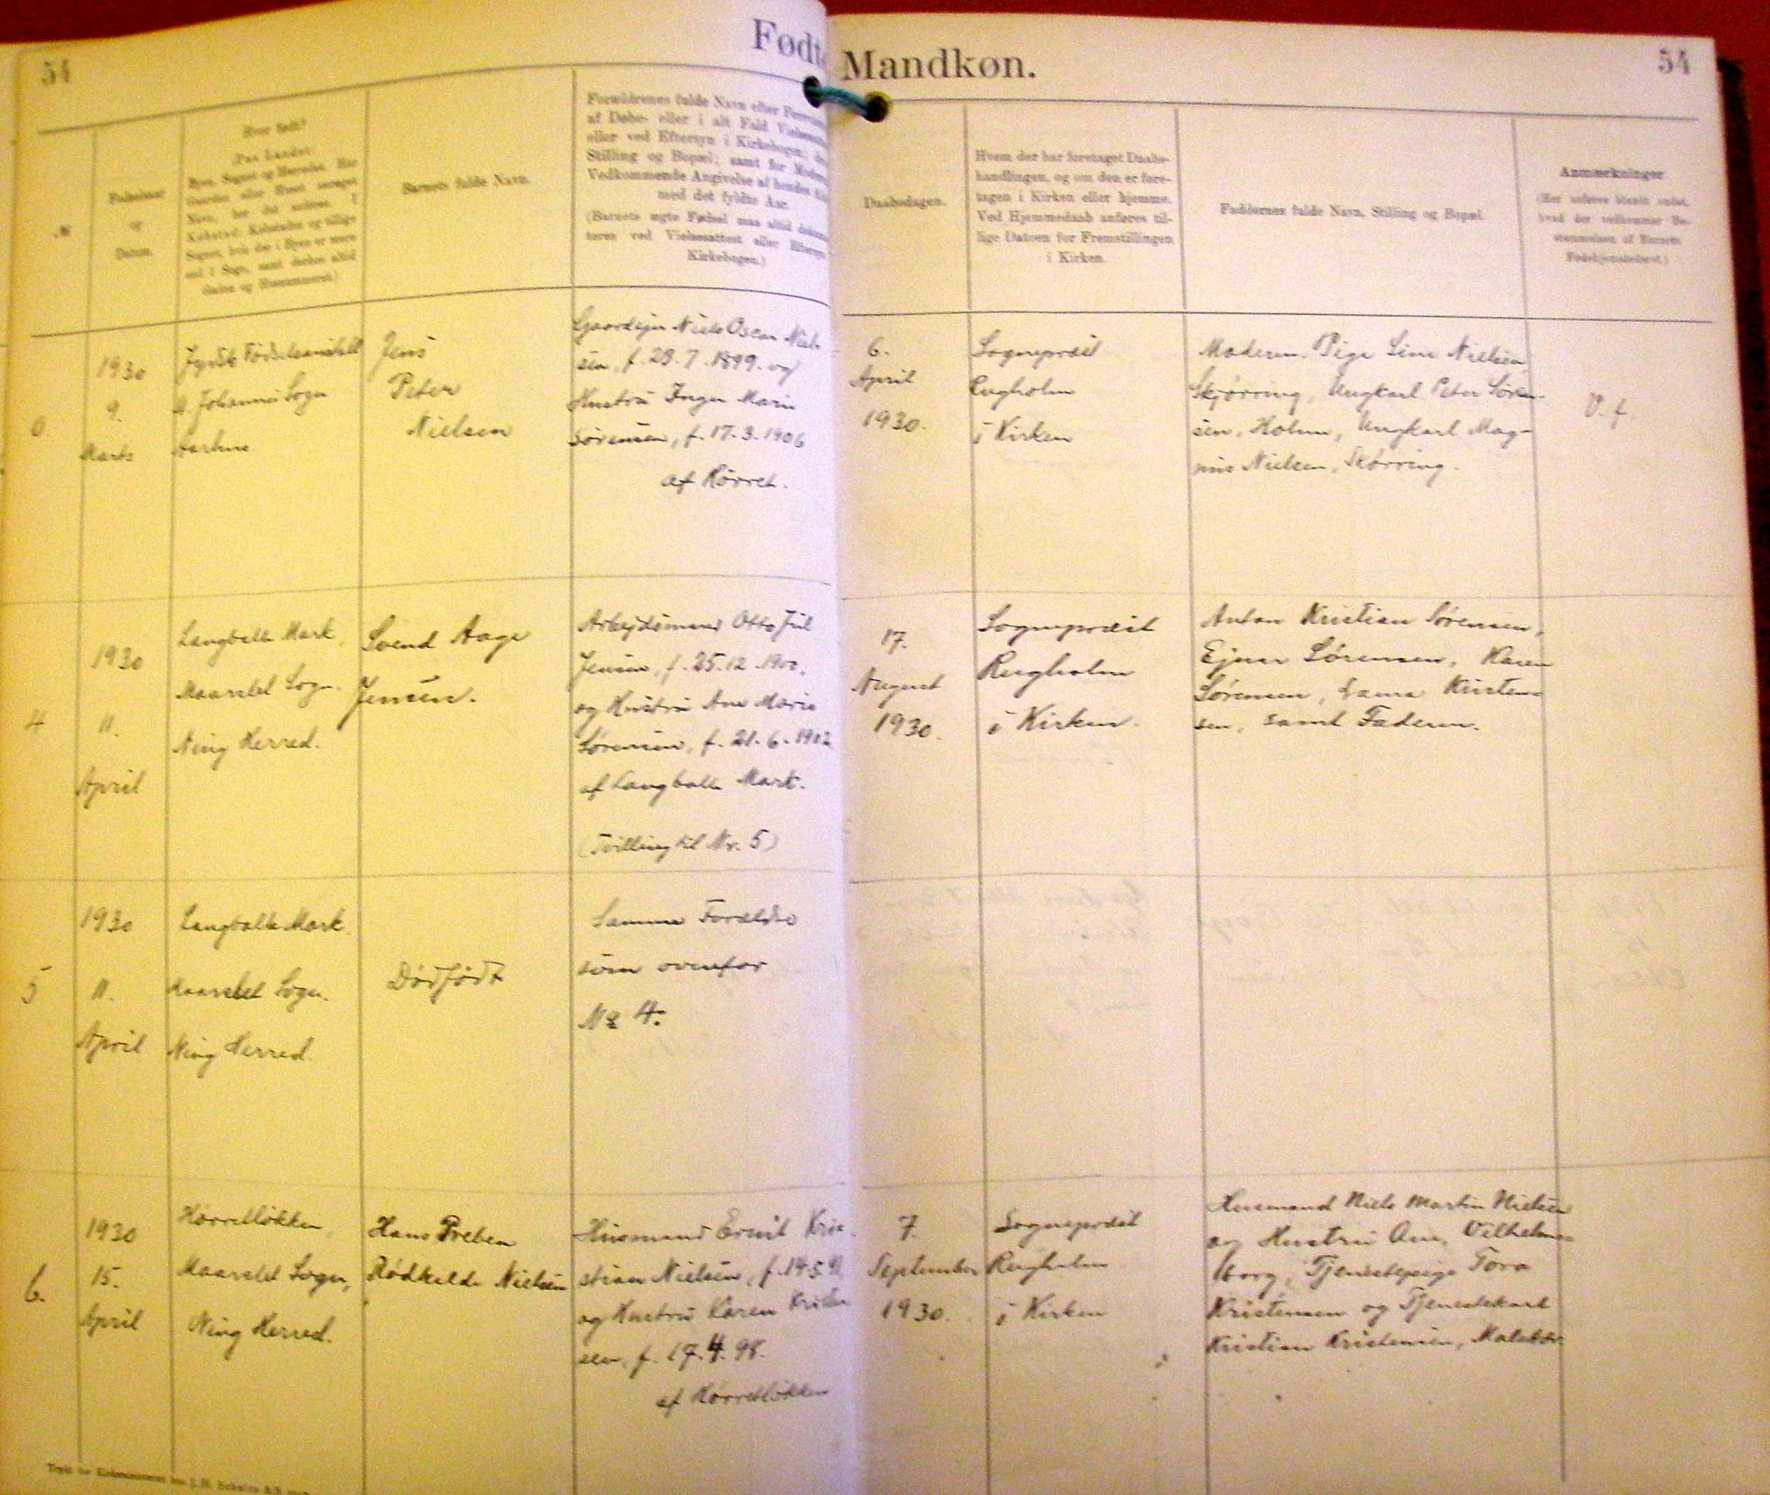 54
Fødte
Mandkøn.
54
№
Fødselsaar
og
Datum.
Hvor født?
(Paa Landet:
Byen, Sognet og Herredet. Har
Gaarden eller Huset særeget
Navn, bør det anføres. I
Købstad: Købstaden og tillige
Sognet, hvis der i Byen er mere
end 1 Sogn, samt derhos altid
Gaden og Husnummeret.)
Barnets fulde Navn.
Forældrenes fulde Navn efter
af Døbe- eller i alt Fald
eller ved Eftersyn i Kirkebogen;
Stilling og Bopæl; samt for
Vedkommende Angivelse af hendes
med det fyldte Aar.
(Barnets ægte Fødsel maa altid
teres ved Vielsesattest eller
Kirkebogen.)
Daabsdagen.
Hvem der har foretaget Daabs-
handlingen, og om den er fore-
tagen i Kirken eller hjemme.
Ved Hjemmedaab anføres til-
lige Datoen for Fremstillingen
i Kirken.
Faddernes fulde Navn, Stilling og Bopæl.
Anmærkninger
(Her anføres blandt andet,
hvad der vedkommer Be-
stemmelsen af Barnets
Fødehjemsted.)
1930
9.
Marts
Jydsk Fødselsanstalt
St. Johannes Sogn
Aarhus
Jens
Peter
Nielsen
Gaardejer Niels Oscar Niel-
sen, f. 23.7.1899. og
Hustru Inger Marie
Sørensen, f. 17.3.1906
af Hørret.
6.
April
1930.
Sognepræst
Rugholm
i Kirken
Moderen. Pige Sine Nielsen
Skjørring, Ungkarl Peter Søren-
sen, Holme, Ungkarl Mag-
nus Nielsen, Skørring.
V. f.
4
1930
11.
April
Langballe Mark,
Maarslet Sogn.
Ning Herred.
Svend Aage
Jensen.
Arbejdsmand Otto Juul
Jensen, f. 25.12.1900,
og Hustru Ane Marie
Sørensen, f. 21.6.1902
af Langballe Mark.
(Tvilling til Nr. 5)
17.
August
1930.
Sognepræst
Rugholm
i Kirken.
Anton Kristian Sørensen,
Ejner Sørensen, Karen
Sørensen, Laura Kristen-
sen, samt Faderen.
5
1930
11.
April
Langballe Mark
Maarslet Sogn.
Ning Herred.
Dødfødt
Samme Forældre
som ovenfor
Nr 4.
6.
1930
15.
April
Hørretløkken,
Maarslet Sogn,
Ning Herred.
Hans Preben
Rødkilde Nielsen
Husmand Ernst Kri-
stian Nielsen, f. 14.5.
og Hustru Karen Kristen
sen, f. 17.4.98.
af Hørretløkken
7.
September
1930.
Sognepræst
Rugholm
i Kirken
Husmand Niels Martin Nielsen
og Hustru Ane, Vilhelms-
borg, Tjenestepige Tora
Kristensen og Tjenestekarl
Kristian Kristensen,